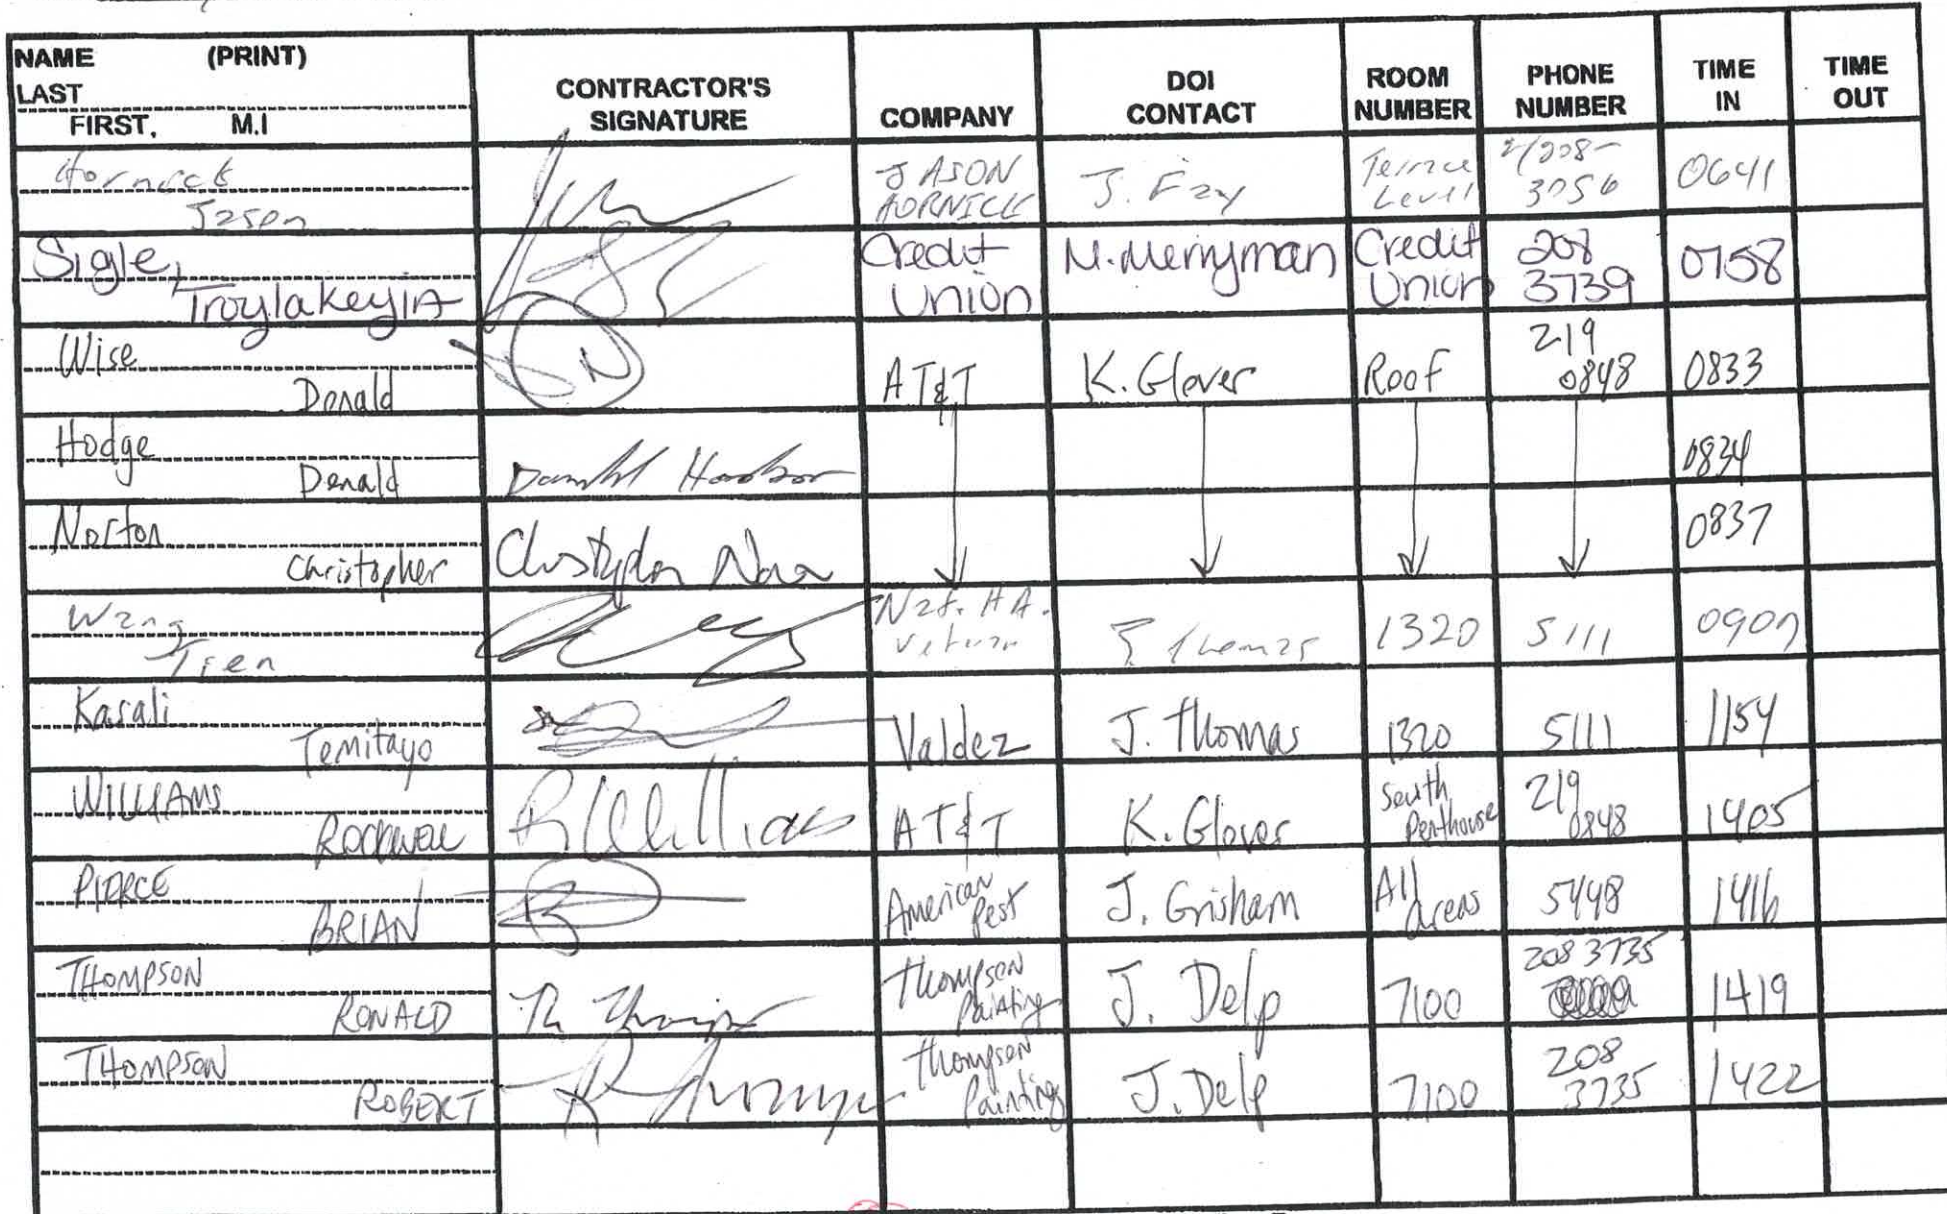 NAME (PRINT)
LAST
FIRST, M.I
CONTRACTOR'S
SIGNATURE
COMPANY
DOI
CONTACT
ROOM
NUMBER
PHONE
NUMBER
TIME
IN
TIME
OUT
Hornick
Jason
JASON
HORNICK
J. Fay
Terrace
Level
208-
3056
0641
Sigle,
Troylakeyia
Credit
Union
M. Merryman
Credit
Union
208
3739
0758
Wise
Donald
AT&T
K. Glover
Roof
219
0848
0833
Hodge
Donald
0834
Norton
Christopher
0837
Wang
Tien
Nat. HA.
Veteran
J Thomas
1320
5111
0907
Kasali
Temitayo
Valdez
J. Thomas
1320
5111
1154
WILLIAMS
ROCKWELL
R Williams
AT&T
K. Glover
South
Penthouse
219
0848
1405
PIERCE
BRIAN
American
Pest
J. Grisham
All
areas
5448
1416
THOMPSON
RONALD
Thompson
Painting
J. Delp
7100
208 3735
1419
THOMPSON
ROBERT
Thompson
Painting
J. Delp
7100
208
3735
1422